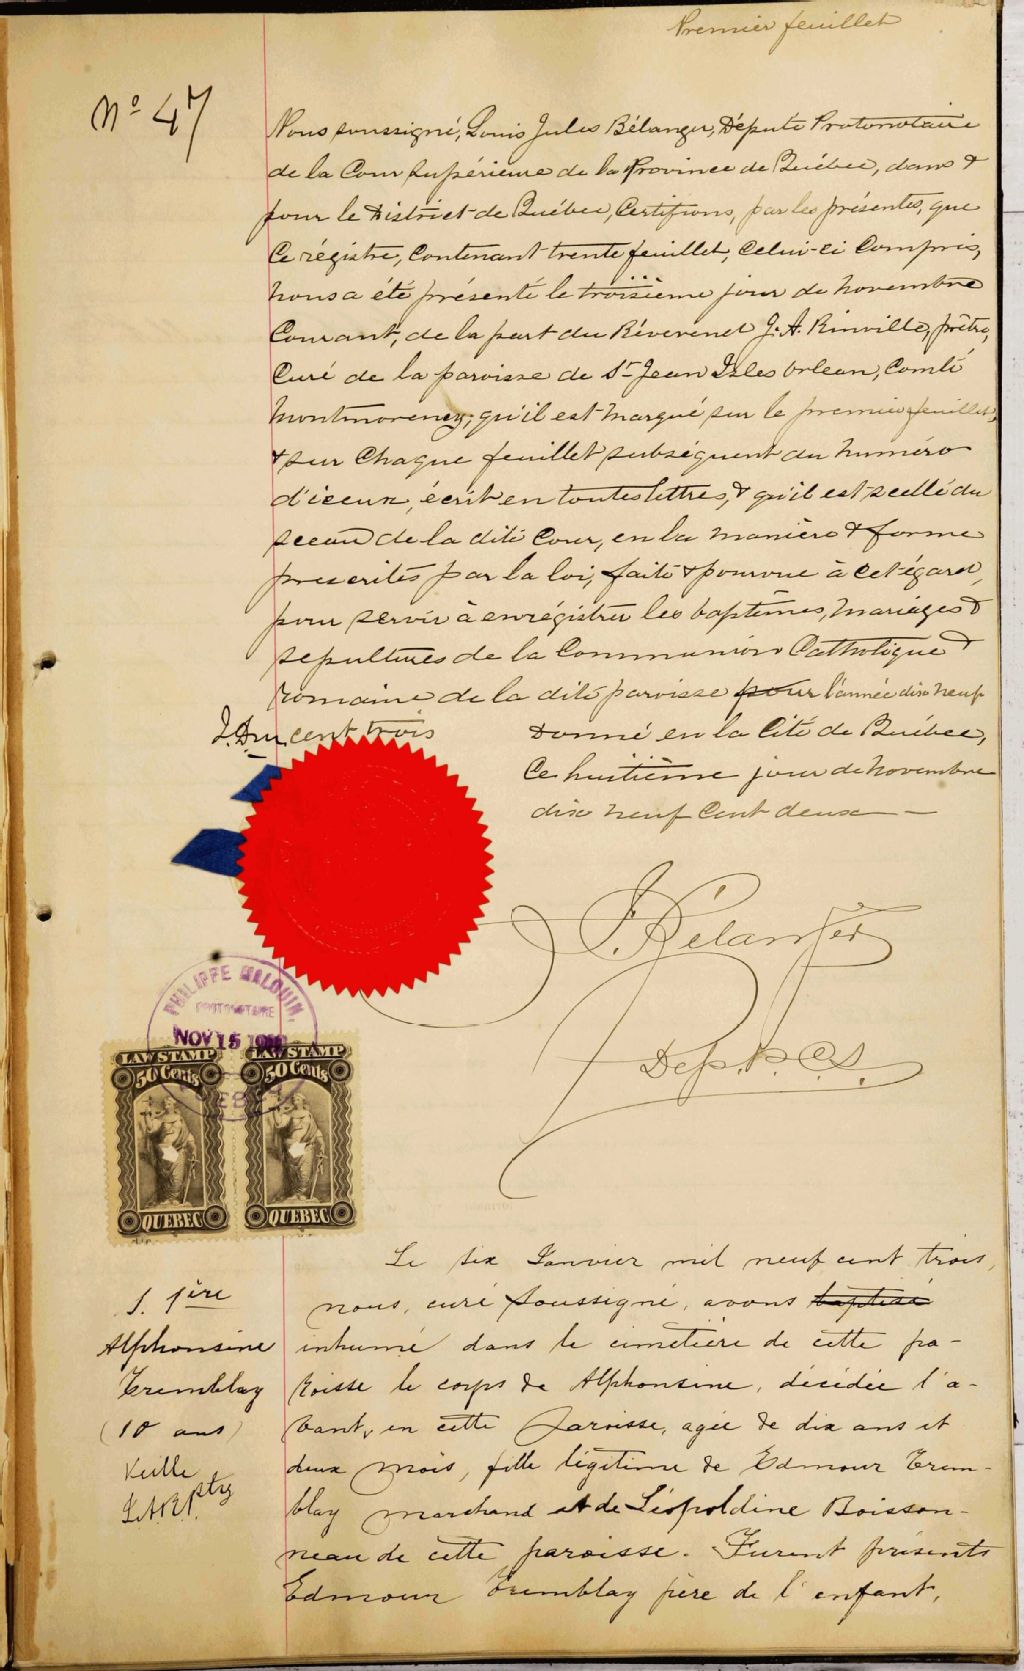 Premier feuillet
No 47
Nous soussigné, Louis Jules Bélanger, Député Protonotaire
de la Cour Supérieure de la Province de Québec, dans &
pour le District de Québec, Certifions, par les présentes, que
Ce régistre, Contenant trente feuillet, Celui-ci Compris,
nous a été présenté le troisième jour de Novembre
Courant, de la part du Réverend J. A. Rinville, prêtre,
Curé de la paroisse de St Jean Isles Orlean, Comté
Montmorency; qu'il est marqué sur le premier feuillet,
& sur Chaque feuillet subséquent du numéro
d'iceux, écrit en toutes lettres, & qu'il est scellé du
sceau de la dite Cour, en la manière & forme
prescrites par la loi, faite & pourvue à Cet égard,
pour servir à enrégistrer les baptêmes, mariages &
sepultures de la Communion Catholique &
romaine de la dite paroisse pour l'année dix neuf
cent trois
Donné en la Cité de Québec,
Ce huitième jour de Novembre
dix neuf Cent deux
J. Bélanger
Dep. P. C. S.
PHILIPPE MALOUIN
PROTONOTAIRE
NOV 15
LAW STAMP LAW STAMP
50 Cents 50 Cents
QUEBEC QUEBEC
Le six Janvier mil neuf cent trois,
nous, curé soussigné, avons baptisé
inhumé dans le cimetière de cette pa-
roisse le corps de Alphonsine, décédée l'a-
vant, en cette paroisse, agée de dix ans et
deux mois, fille légitime de Edmour Trem-
blay marchand et de Léopoldine Boisson-
neau de cette paroisse. Furent présents
Edmour Tremblay père de l'enfant,
S. 1ère
Alphonsine
Tremblay
(10 ans)